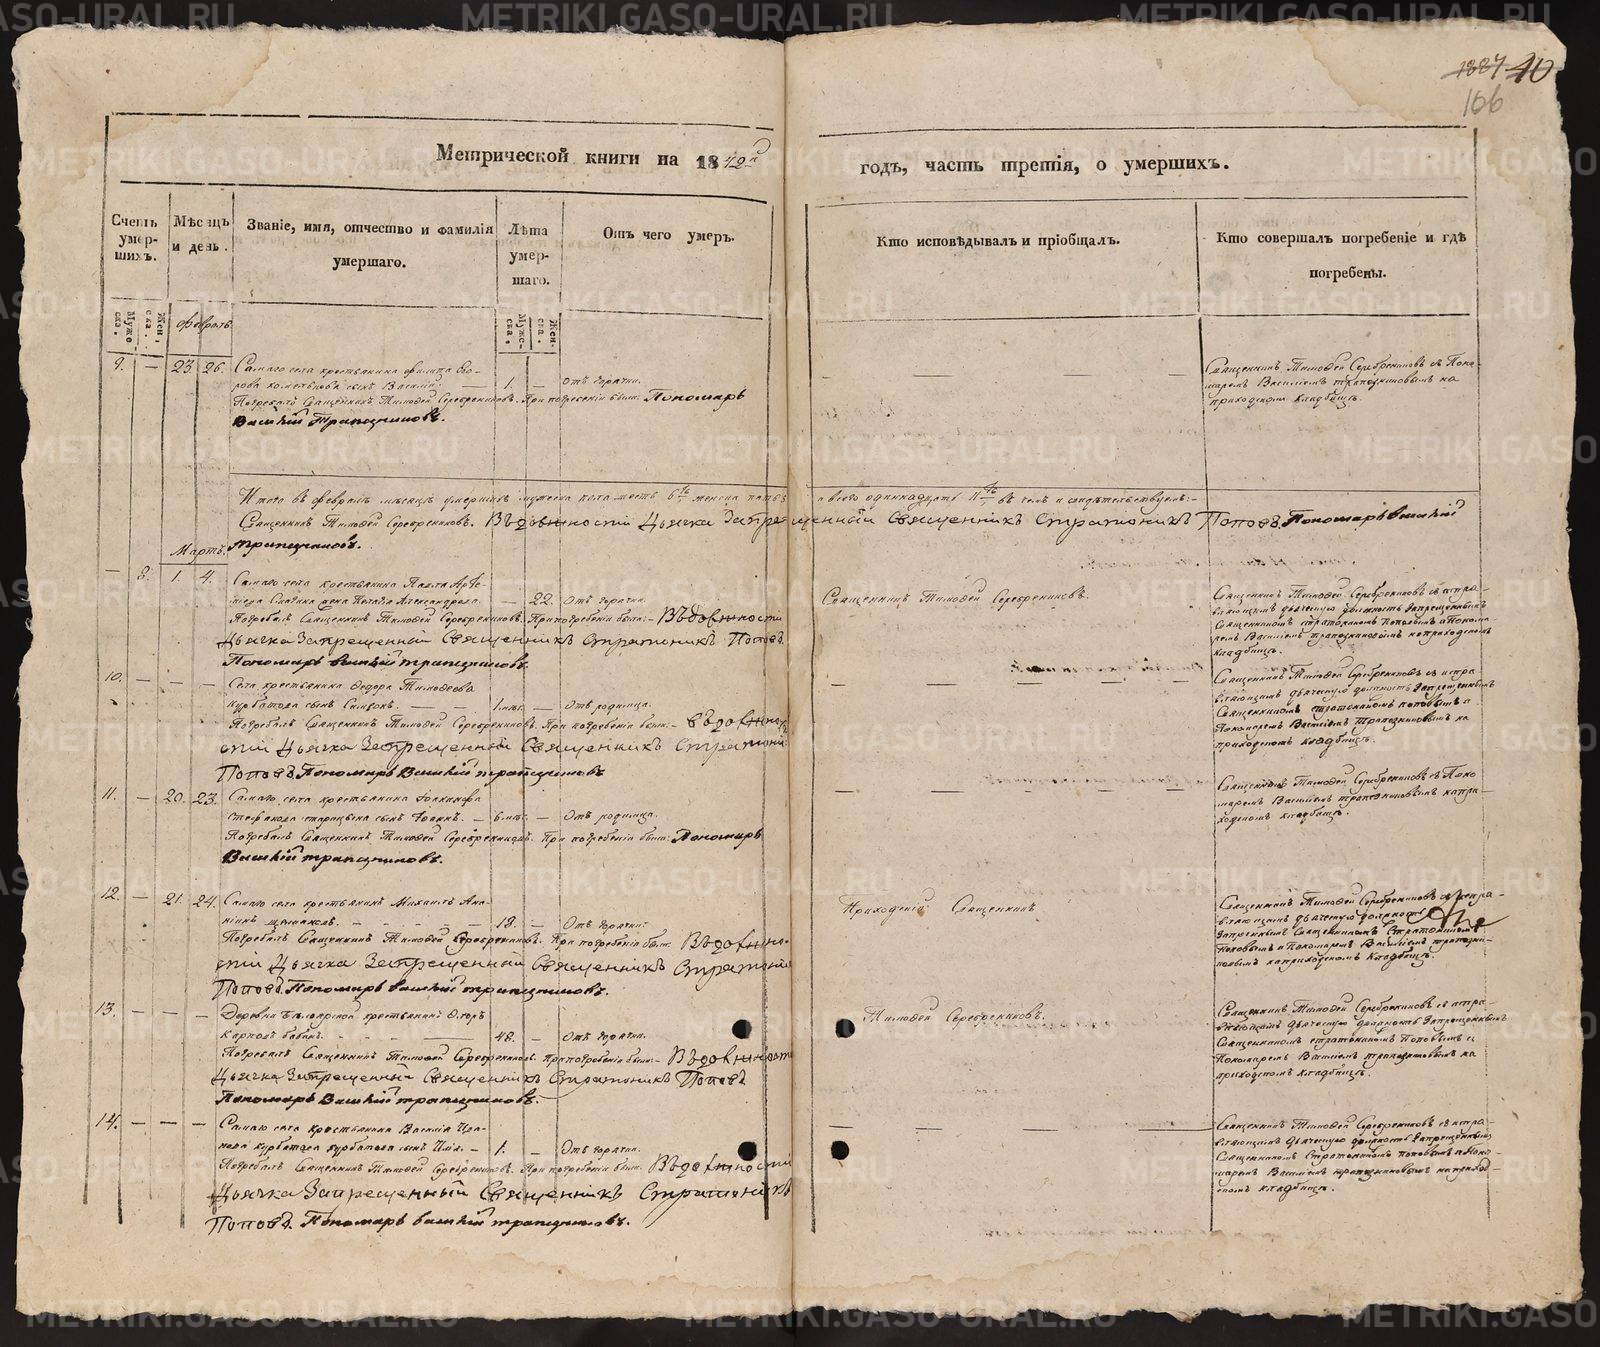 1887 10
106
Метрической книги на 1842й
годъ, часть третія, о умершихъ.
Счетъ умер-шихъ.
Мѣсяцъ и день.
Званіе, имя, отчество и фамилія умершаго.
Лѣта умер-шаго.
Отъ чего умеръ.
Кто исповѣдывалъ и пріобщалъ.
Кто совершалъ погребеніе и гдѣ погребены.
Муже-ска.
Жен-ска.
Февраль.
Муже-ска.
Жен-ска.
9. — 23. 26. Самаго села крестьянина Филипа
сынъ Василій. — 1. — Отъ горячки.
Погребалъ Священникъ Тимоѳей Серебренниковъ. При погребеніи былъ: Пономарь
Василій Трапезниковъ.
Священникъ Тимоѳей Серебренниковъ съ Поно-
маремъ Василіемъ Трапезниковымъ на
приходскомъ кладбищѣ.
Итого въ февралѣ мѣсяцѣ умершихъ мужеска пола шесть 6ть женска пять 5 а всего одиннадцать 11ть въ чемъ и свидѣтельствуемъ:-
Священникъ Тимоѳей Серебренниковъ. Въ должности Дьячка Запрещенный Священникъ Стратоникъ Поповъ. Пономарь Василій
Трапезниковъ.
Мартъ.
— 8. 1. 4. Самаго села крестьянина Павла Арте-
жена Александрова. — 22. Отъ горячки.
Погребалъ Священникъ Тимоѳей Серебренниковъ. При погребеніи были:- Въ должности
Дьячка Запрещенный Священникъ Стратоникъ Поповъ.
Пономарь Василій Трапезниковъ.
Священникъ Тимоѳей Серебренниковъ.
Священникъ Тимоѳей Серебренниковъ съ испра-
вляющимъ дьяческую должность Запрещеннымъ
Священникомъ Стратоникомъ Поповымъ и Понома-
ремъ Василіемъ Трапезниковымъ на приходскомъ
кладбищѣ.
10. — — — Села крестьянина Ѳедора Тимоѳеева
Курбатова сынъ Симеонъ. — — Отъ родимца.
Погребалъ Священникъ Тимоѳей Серебренниковъ. При погребеніи были:- Въ должно-
сти Дьячка Запрещенный Священникъ Стратоникъ
Поповъ. Пономарь Василій Трапезниковъ
Священникъ Тимоѳей Серебренниковъ съ испра-
вляющимъ дьяческую должность Запрещеннымъ
Священникомъ Стратоникомъ Поповымъ и
Пономаремъ Василіемъ Трапезниковымъ на
приходскомъ кладбищѣ.
11. — 20. 23. Самаго села крестьянина
сынъ Іоаннъ. — — Отъ родимца.
Погребалъ Священникъ Тимоѳей Серебренниковъ. При погребеніи былъ: Пономарь
Василій Трапезниковъ.
Священникъ Тимоѳей Серебренниковъ съ Поно-
маремъ Василіемъ Трапезниковымъ на при-
ходскомъ кладбищѣ.
12. — 21. 24. Самаго села крестьянинъ Михаилъ Ана-
нiинъ — 18. — Отъ горячки.
Погребалъ Священникъ Тимоѳей Серебренниковъ. При погребеніи были: Въ должно-
сти Дьячка Запрещенный Священникъ Стратоникъ
Поповъ. Пономарь Василій Трапезниковъ.
Приходскій Священникъ
Священникъ Тимоѳей Серебренниковъ съ испра-
вляющимъ дьяческую должность
Запрещеннымъ Священникомъ Стратоникомъ
Поповымъ и Пономаремъ Василіемъ Трапезни-
ковымъ на приходскомъ кладбищѣ.
13. — — — Деревни крестьянинъ
48. — Отъ горячки.
Погребалъ Священникъ Тимоѳей Серебренниковъ. При погребеніи были:- Въ должности
Дьячка Запрещенный Священникъ Стратоникъ Поповъ
Пономарь Василій Трапезниковъ.
Тимоѳей Серебренниковъ.
Священникъ Тимоѳей Серебренниковъ съ испра-
вляющимъ дьяческую должность Запрещеннымъ
Священникомъ Стратоникомъ Поповымъ и
Пономаремъ Василіемъ Трапезниковымъ на
приходскомъ кладбищѣ.
14. — — — Самаго села крестьянина Василія Ива-
нова Курбатова сынъ — 1. — Отъ горячки.
Погребалъ Священникъ Тимоѳей Серебренниковъ. При погребеніи были: Въ должности
Дьячка Запрещенный Священникъ Стратоникъ
Поповъ. Пономарь Василій Трапезниковъ.
Священникъ Тимоѳей Серебренниковъ съ испра-
вляющимъ дьяческую должность Запрещеннымъ
Священникомъ Стратоникомъ Поповымъ и Поно-
маремъ Василіемъ Трапезниковымъ на приход-
скомъ кладбищѣ.
METRIKI.GASO-URAL.RU